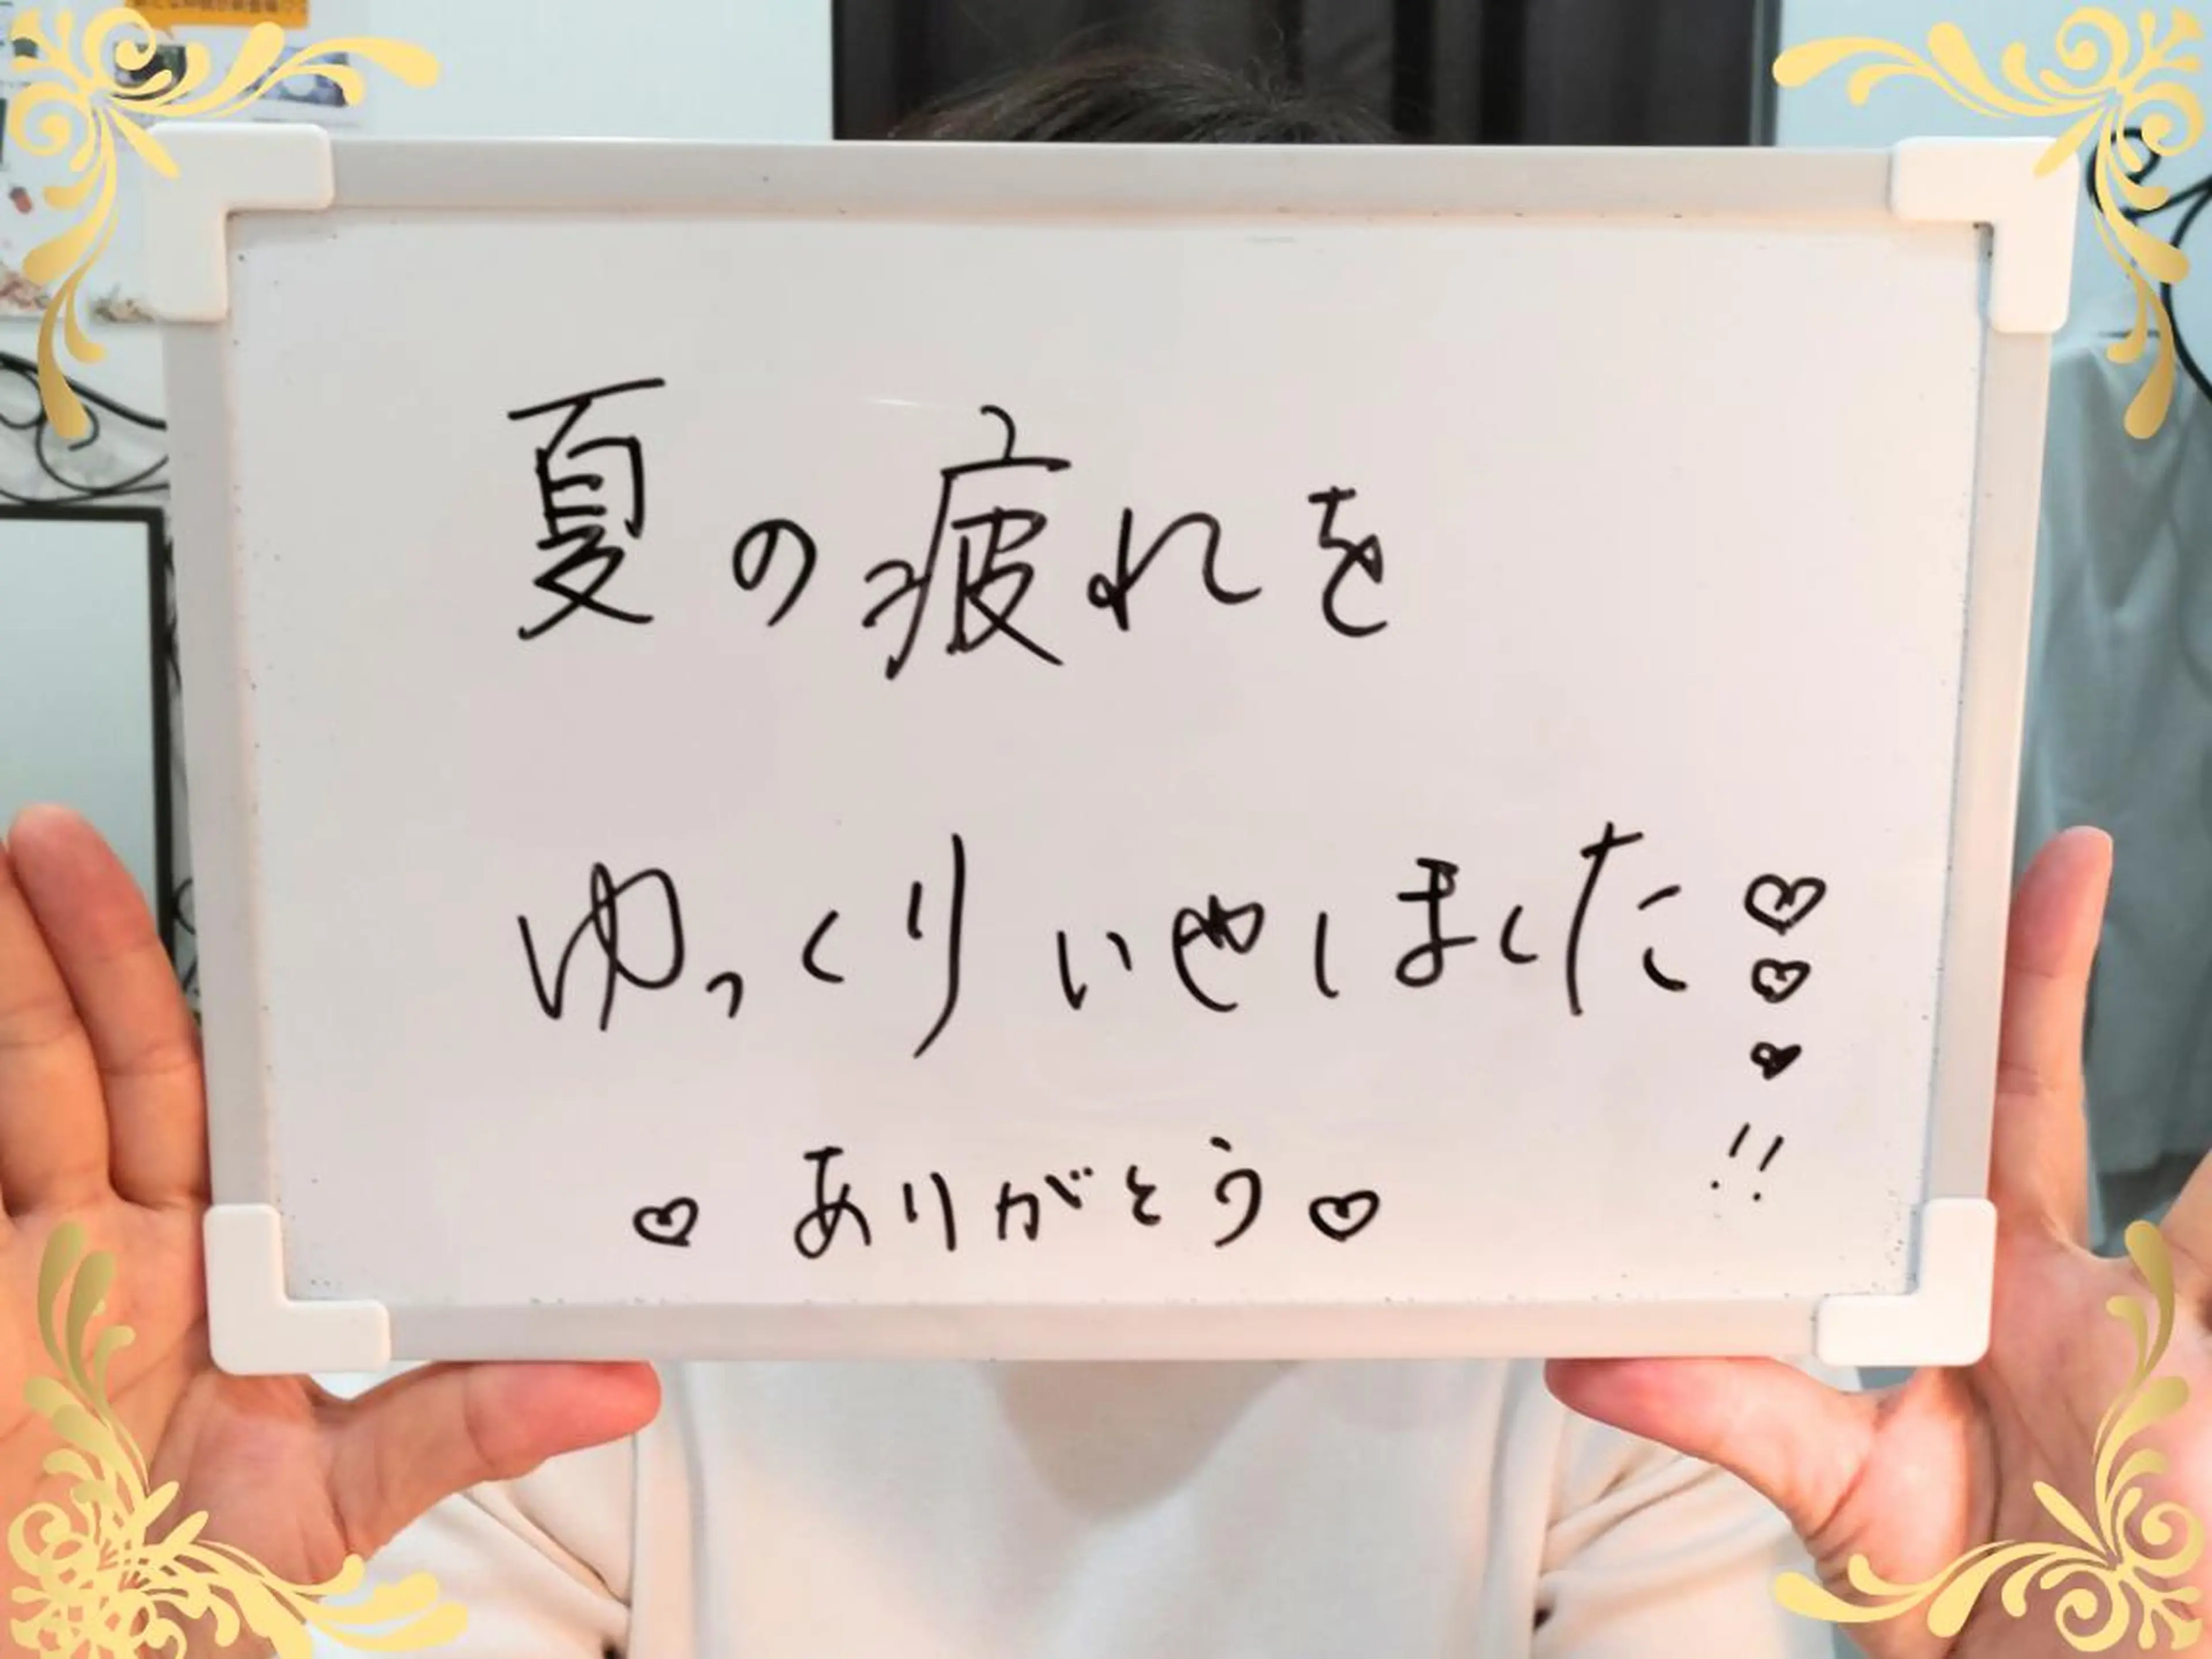 夏の疲れを
ゆっくりいやしました♡♡♥!!
♡ ありがとう♡